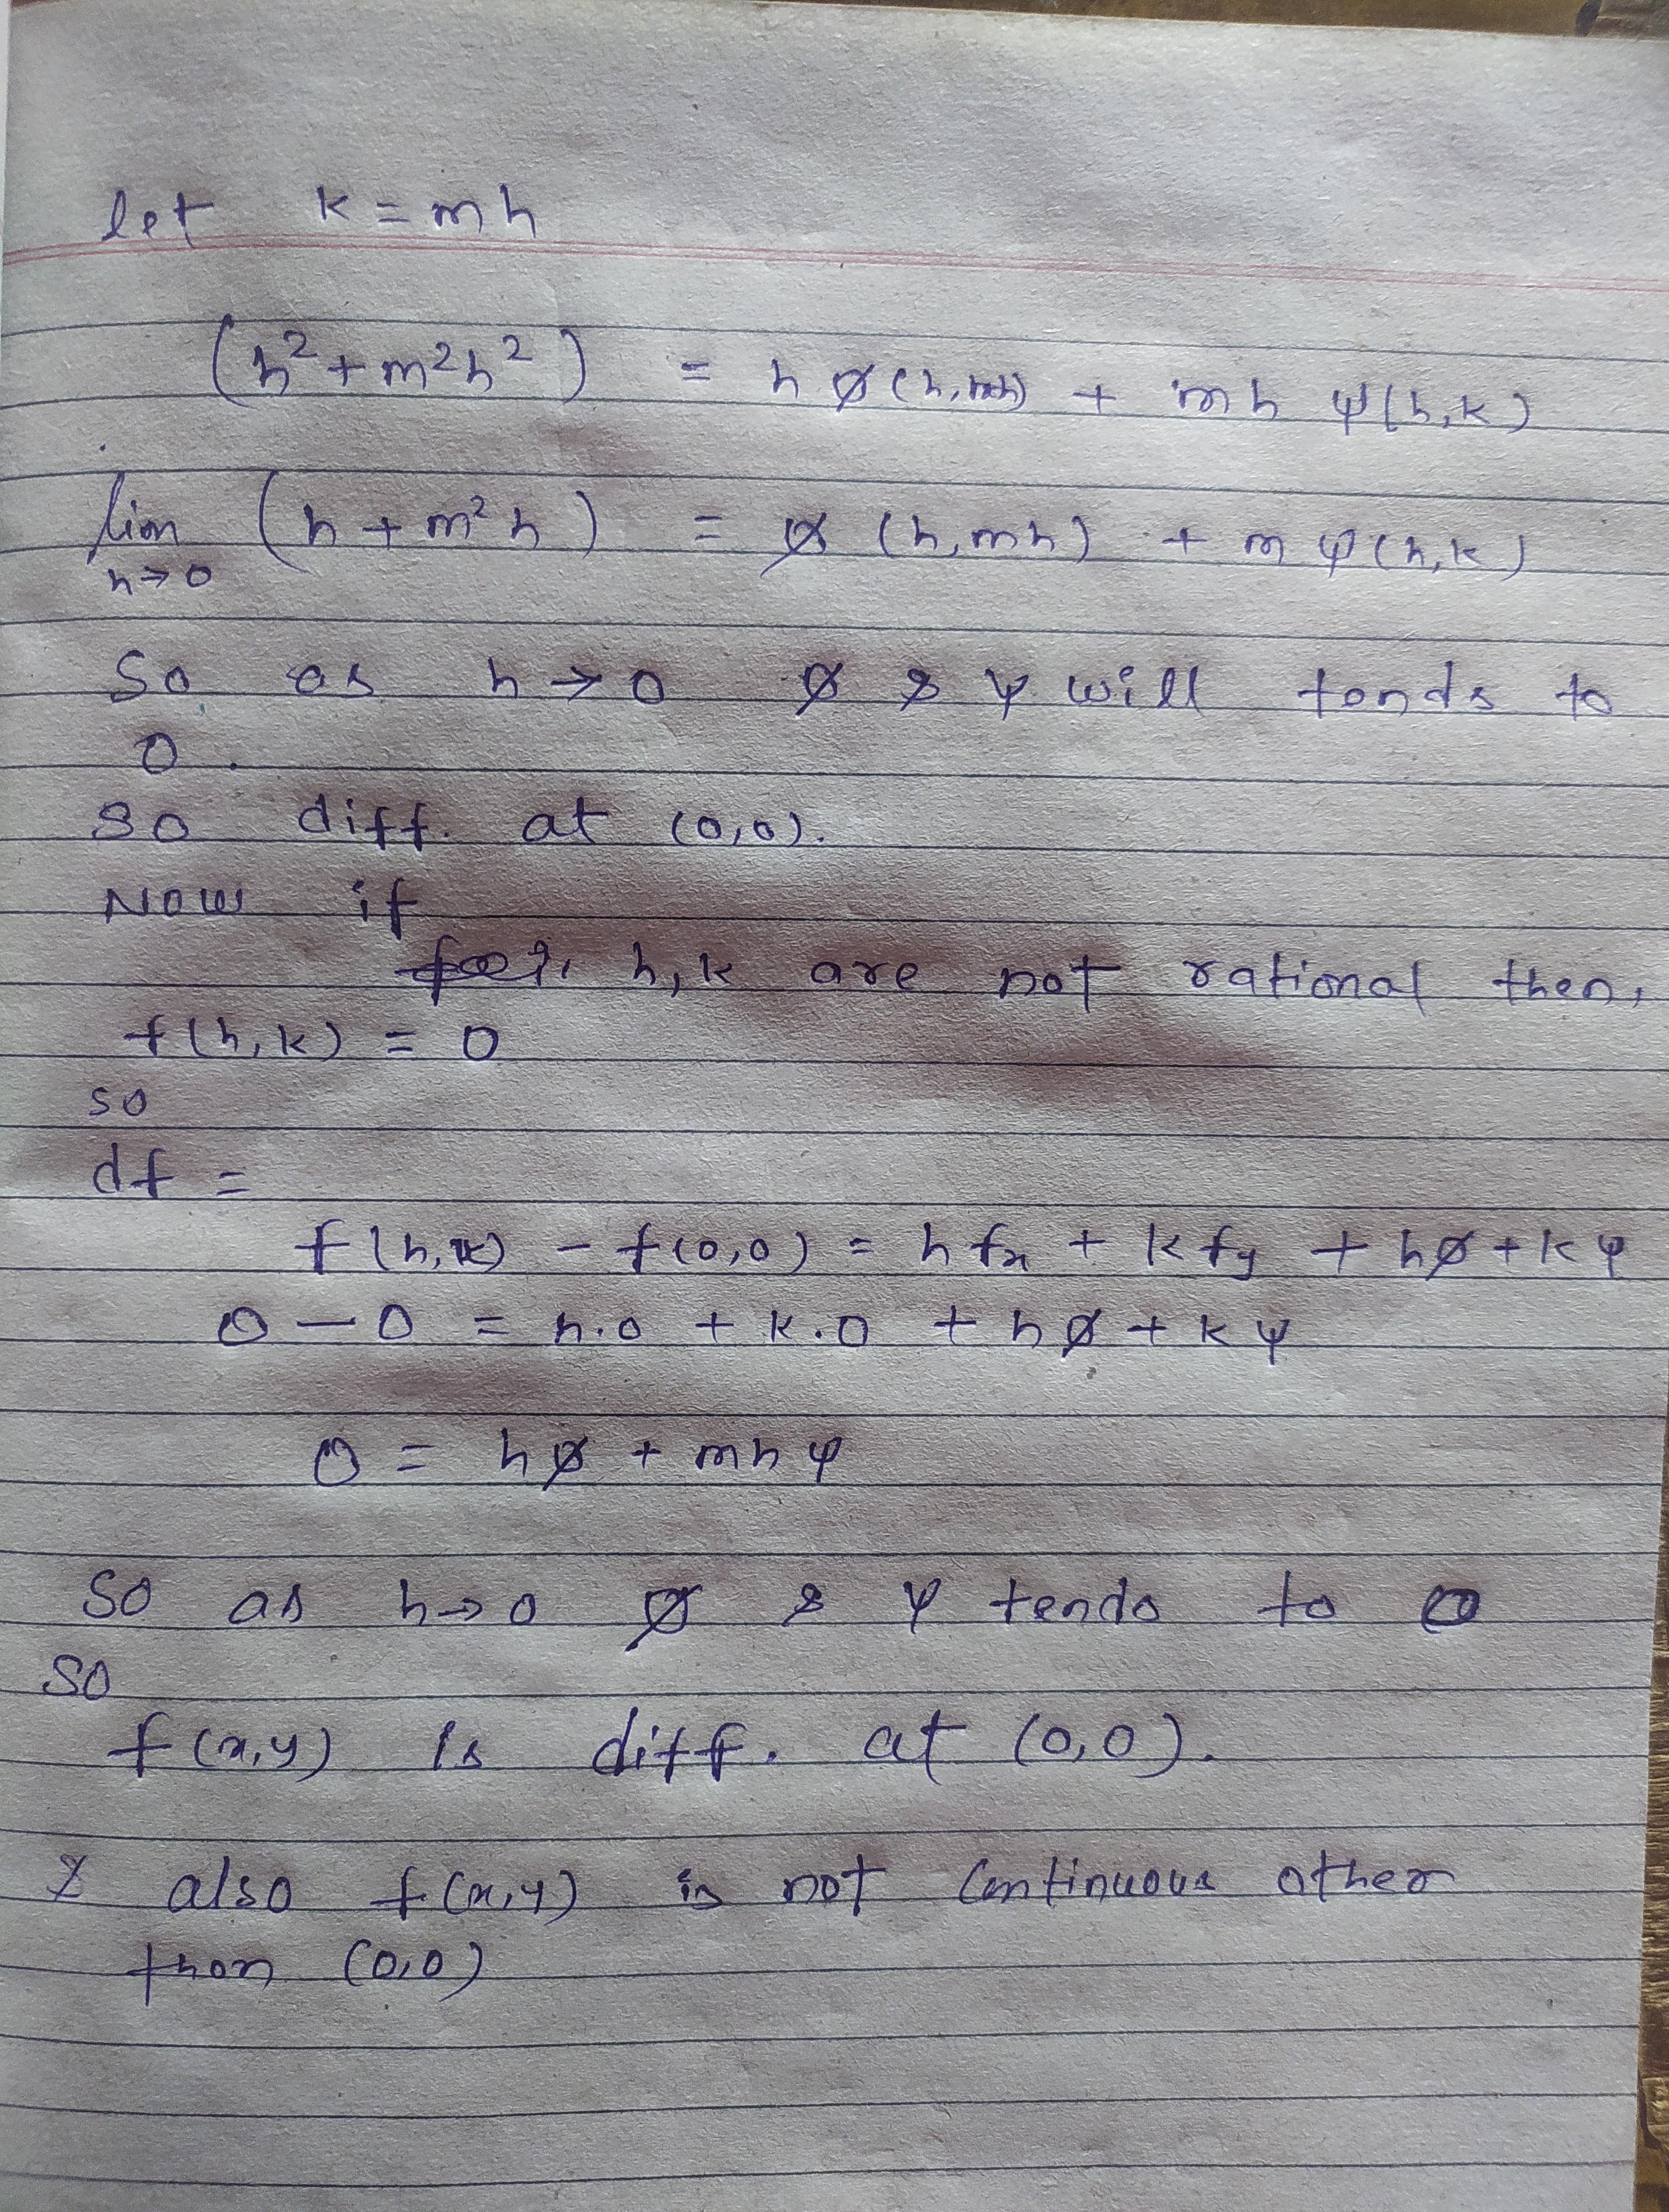 let k = mh
(h² + m²h²) = h ø(h, mh) + mh ψ(h,k)
lim (h + m²h) = ø (h, mh) + m ψ(h,k)
h→0
So as h → 0 ø & ψ will tends to
0.
so diff. at (0,0).
Now if
h,k are not rational then,
f(h,k) = 0
so
df =
f(h,k) - f(0,0) = h fx + k fy + hø + kψ
0 - 0 = h.0 + k.0 + hø + kψ
0 = hø + mhψ
So as h→0 ø & ψ tends to 0
So
f(x,y) is diff. at (0,0).
& also f(x,y) is not Continuous other
than (0,0)